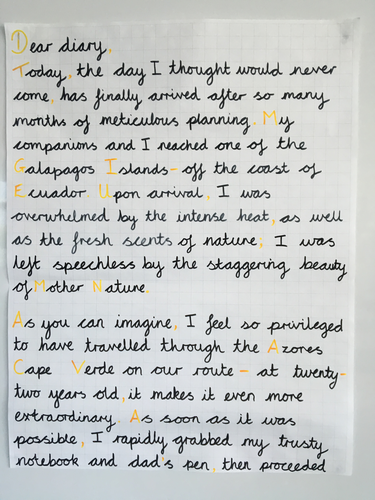 Dear diary,
Today, the day I thought would never
come, has finally arrived after so many
months of meticulous planning. My
companions and I reached one of the
Galapagos Islands - off the coast of
Ecuador. Upon arrival, I was
overwhelmed by the intense heat, as well
as the fresh scents of nature; I was
left speechless by the staggering beauty
of Mother Nature.
As you can imagine, I feel so privileged
to have travelled through the Azores
Cape Verde on our route - at twenty-
two years old, it makes it even more
extraordinary. As soon as it was
possible, I rapidly grabbed my trusty
notebook and dad's pen, then proceeded